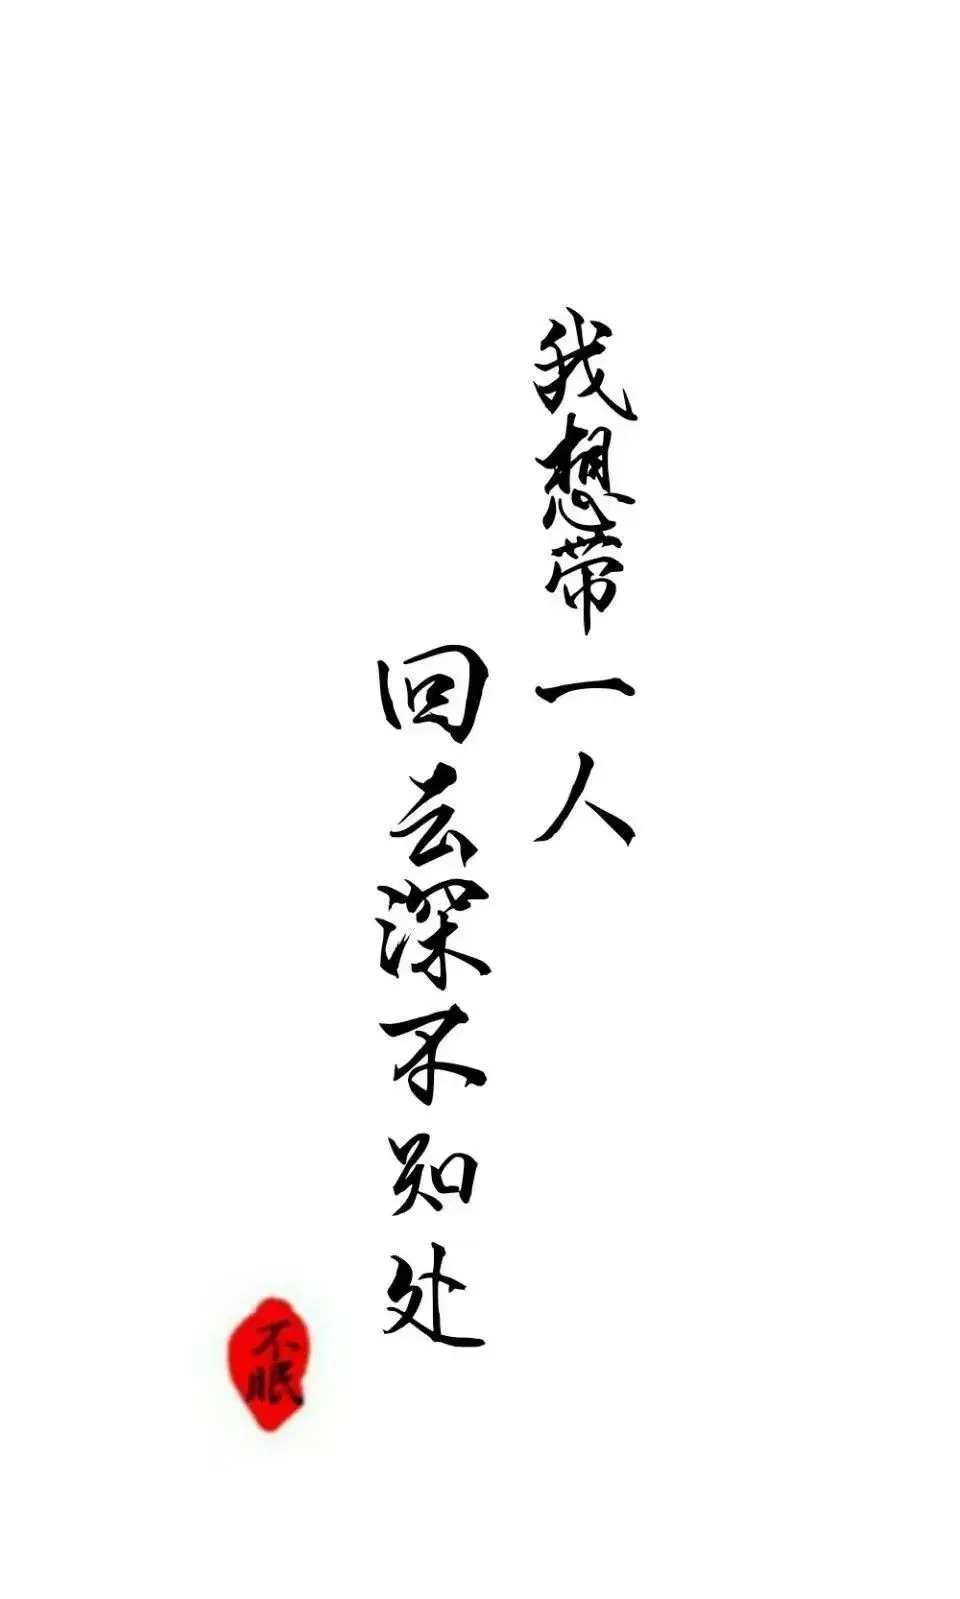 我想带一人
回去深不知处
不
眠